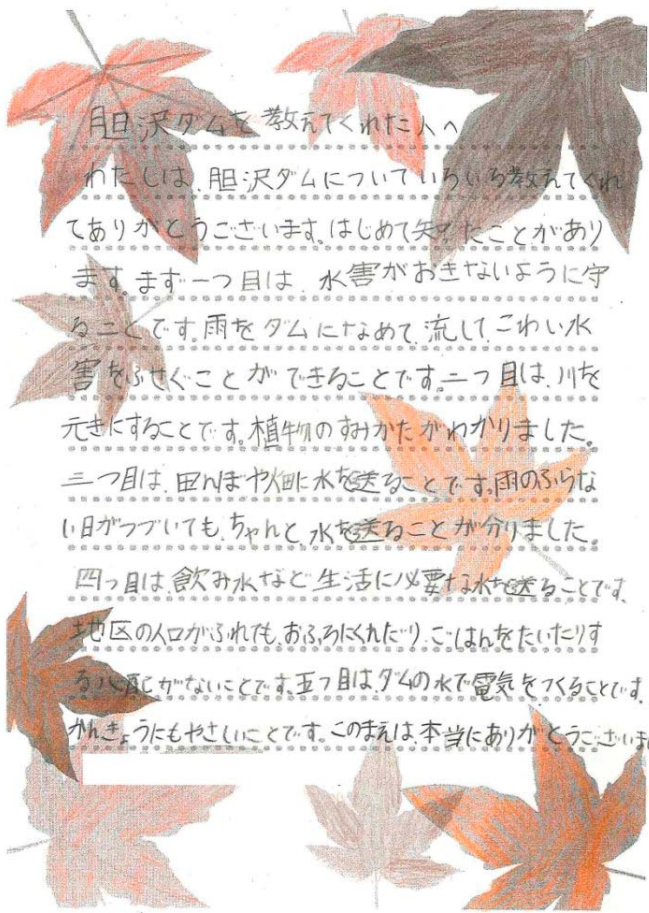 胆沢ダムを教えてくれた人へ
わたしは、胆沢ダムについていろいろ教えてくれ
てありがとうございます。はじめて知ったことがあり
ます。まず一つ目は、水害がおきないように守
ることです。雨をダムにためて、流して、こわい水
害をふせぐことができることです。二つ目は、川を
元きにすることです。植物のすみかたがわかりました。
三つ目は、田んぼや畑に水を送ることです。雨のふらな
い日がつづいても、ちゃんと、水を送ることが分りました。
四つ目は、飲み水など生活に必要な水を送ることです。
地区の人口がふれても、おふろにくれたり、ごはんをたいたりす
る心配がないことです。五つ目は、ダムの水で電気をつくることです。
かんきょうにもやさしいことです。このまえは、本当にありがとうございま